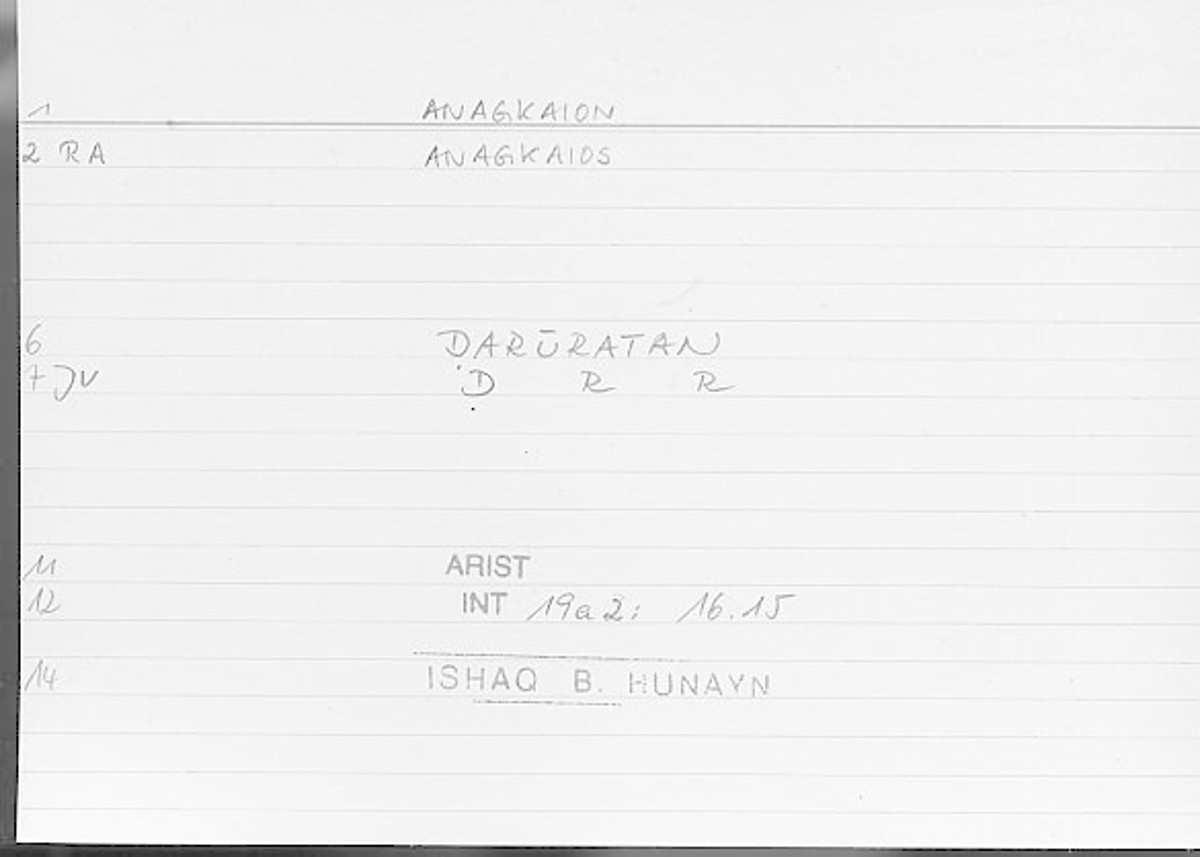 1 ANAGKAION
2 RA ANAGKAIOS
6 DARŪRATAN
7 JV Ḍ R R
11 ARIST
12 INT 19a2: 16.15
14 ISHAQ B. HUNAYN